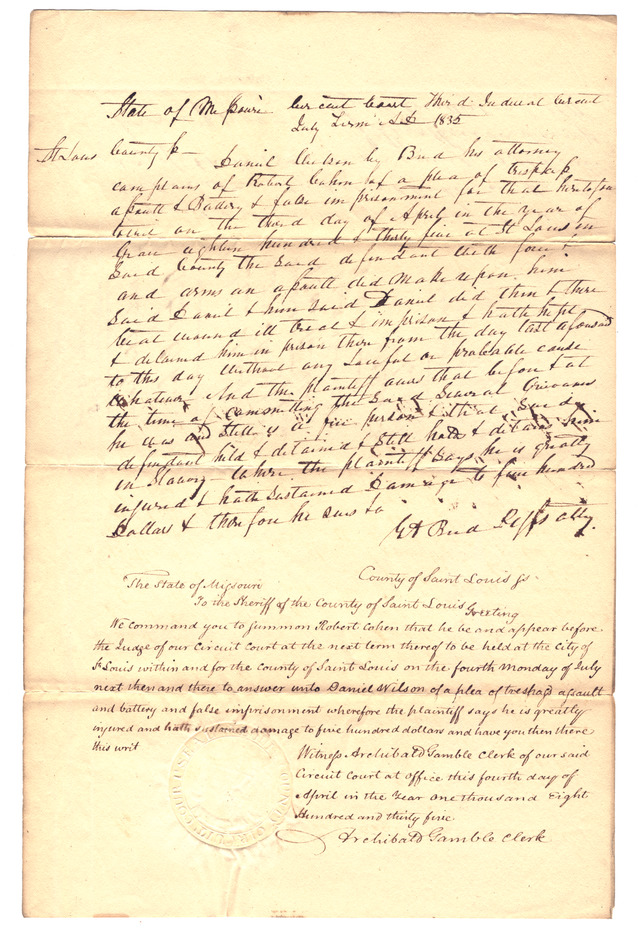 State of Missouri Circuit Court Third Judicial Circuit
July Term AD 1835
St Louis County ss— Daniel Wilson by Bird his attorney
complains of Robert Cohen of a plea of trespass
assault & Battery & false imprisonment for that heretofore
to wit on the third day of April in the year of
Grace eighteen hundred & thirty five at St Louis in
Said County the Said defendant with force &
and arms an assault did make upon him
Said Daniel & him Said Daniel did then & there
beat wound ill treat & imprison & hath kept
& detained him in prison there from the day last aforesaid
to this day without any lawful or probable cause
whatever And the plaintiff avers that before & at
the time of committing the Said Several Grievances
he was and Still is a free person & that Said
defendant held & detained & Still holds & detains him
in Slavery Where the plaintiff Says he is greatly
injured & hath Sustained Damage to five hundred
Dollars & therefore he sues &c
Bird Plffs atty.
County of Saint Louis ss.
The State of Missouri
To the Sheriff of the County of Saint Louis Greeting
We command you to summon Robert Cohen that he be and appear before
the Judge of our Circuit Court at the next term thereof to be held at the City of
St Louis within and for the County of Saint Louis on the fourth Monday of July
next then and there to answer unto Daniel Wilson of a plea of trespass assault
and battery and false imprisonment wherefore the plaintiff says he is greatly
injured and hath sustained damage to five hundred dollars and have you then there
this writ
Witness Archibald Gamble Clerk of our said
Circuit Court at office this fourth day of
April in the Year one thousand Eight
Hundred and thirty five
Archibald Gamble Clerk